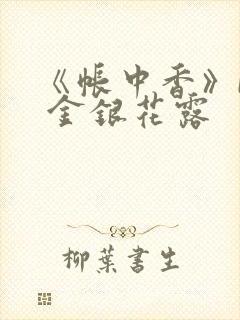 《帐中香》
金银花露
柳叶书生